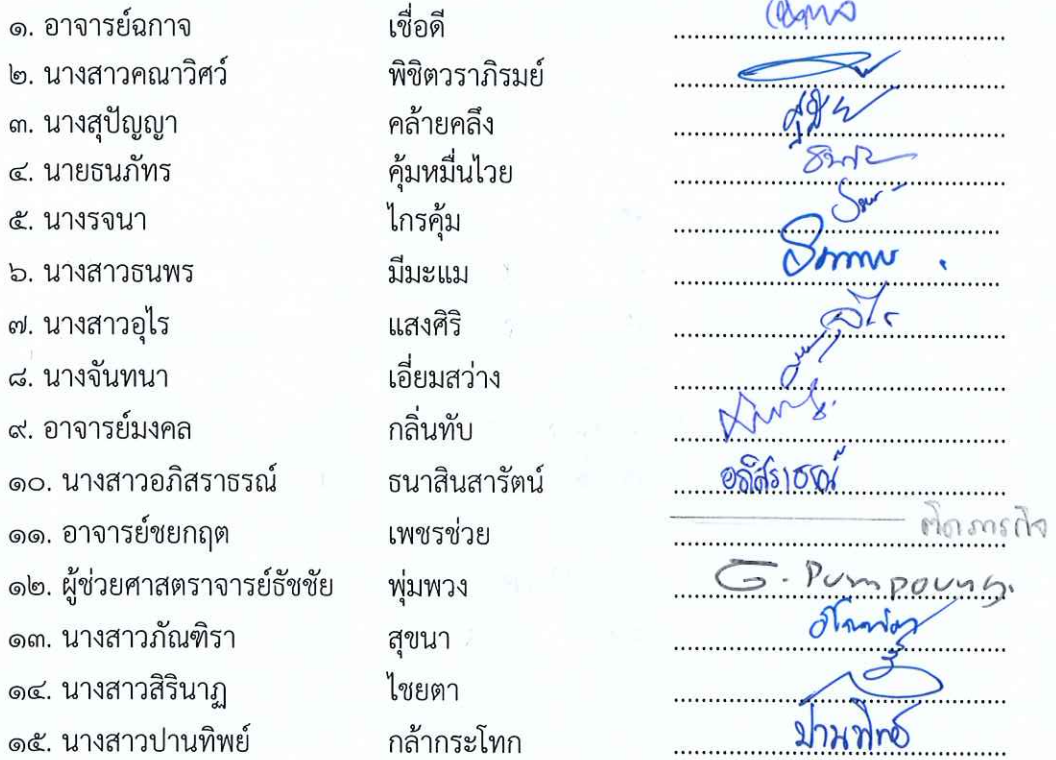 ๑. อาจารย์ฉกาจ เชื่อดี
๒. นางสาวคณาวิศว์ พิชิตวราภิรมย์
๓. นางสุปัญญา คล้ายคลึง
๔. นายธนภัทร คุ้มหมื่นไวย
๕. นางรจนา ไกรคุ้ม
๖. นางสาวธนพร มีมะแม
๗. นางสาวอุไร แสงศิริ อุไร
๘. นางจันทนา เอี่ยมสว่าง
๙. อาจารย์มงคล กลิ่นทับ
๑๐. นางสาวอภิสราธรณ์ ธนาสินสารัตน์ อภิสราธรณ์
๑๑. อาจารย์ชยกฤต เพชรช่วย ติดภารกิจ
๑๒. ผู้ช่วยศาสตราจารย์ธัชชัย พุ่มพวง G. Pumpoung.
๑๓. นางสาวภัณฑิรา สุขนา
๑๔. นางสาวสิรินาฏ ไชยตา
๑๕. นางสาวปานทิพย์ กล้ากระโทก ปานทิพย์